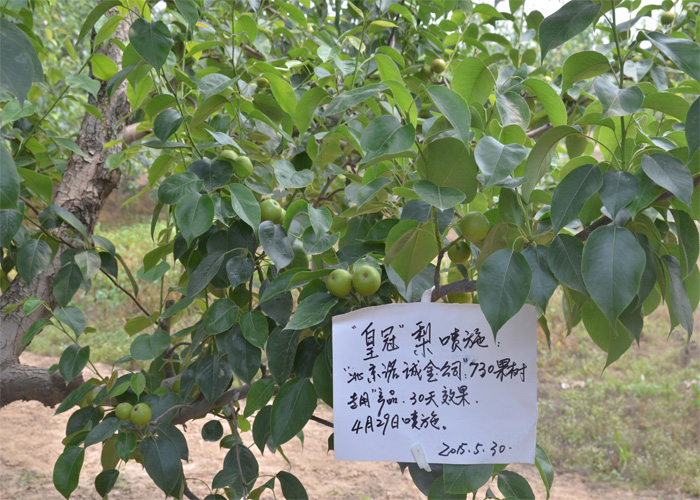 "皇冠"梨喷施:
"北京浩诚公司"730果树
专用产品.30天效果.
4月29日喷施。
2015.5.30